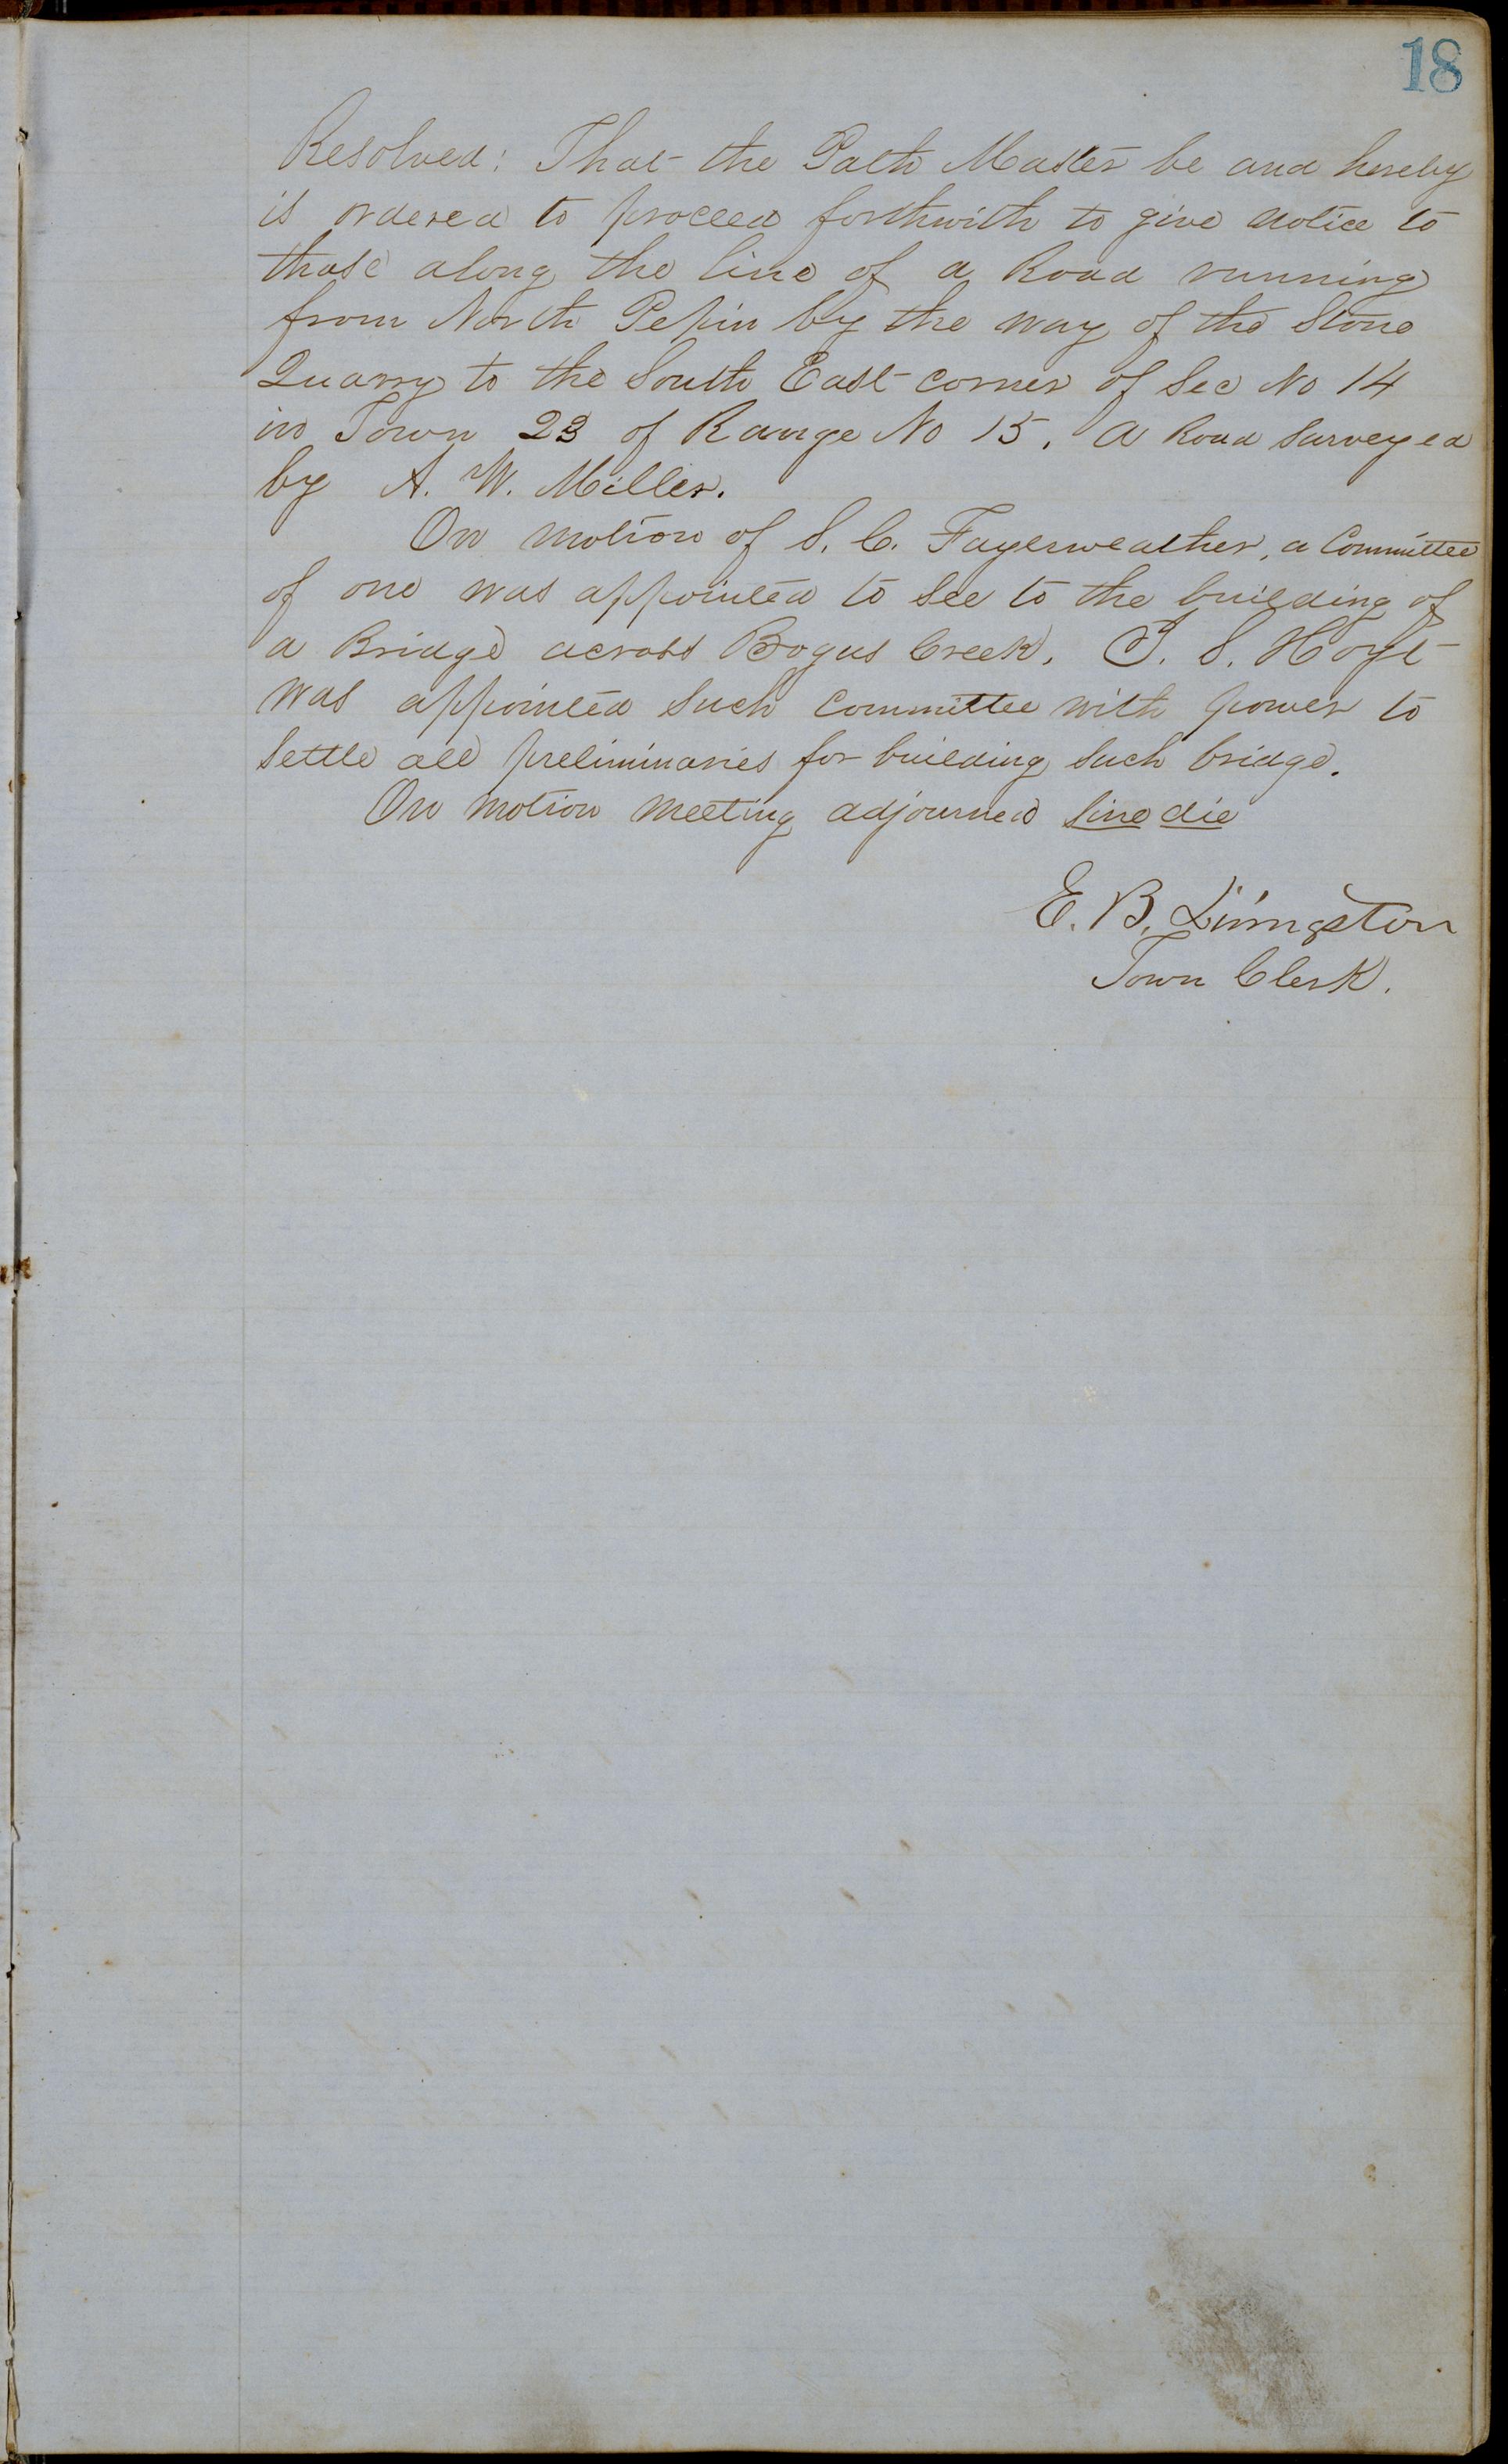 18
Resolved: That the Path Master be and hereby
is ordered to proceed forthwith to give notice to
those along the line of a Road running
from North Pepin by the way of the Stone
Quarry to the South East corner of Sec No 14
in Town 23 of Range No 15. A Road surveyed
by A. W. Miller.
On motion of S. C. Fayerweather, a Committee
of one was appointed to see to the building of
a Bridge across Bogus Creek. P. S. Hoyt
was appointed such committee with power to
settle all preliminaries for building such bridge.
On motion meeting adjourned sine die
E. B. Livingston
Town Clerk.